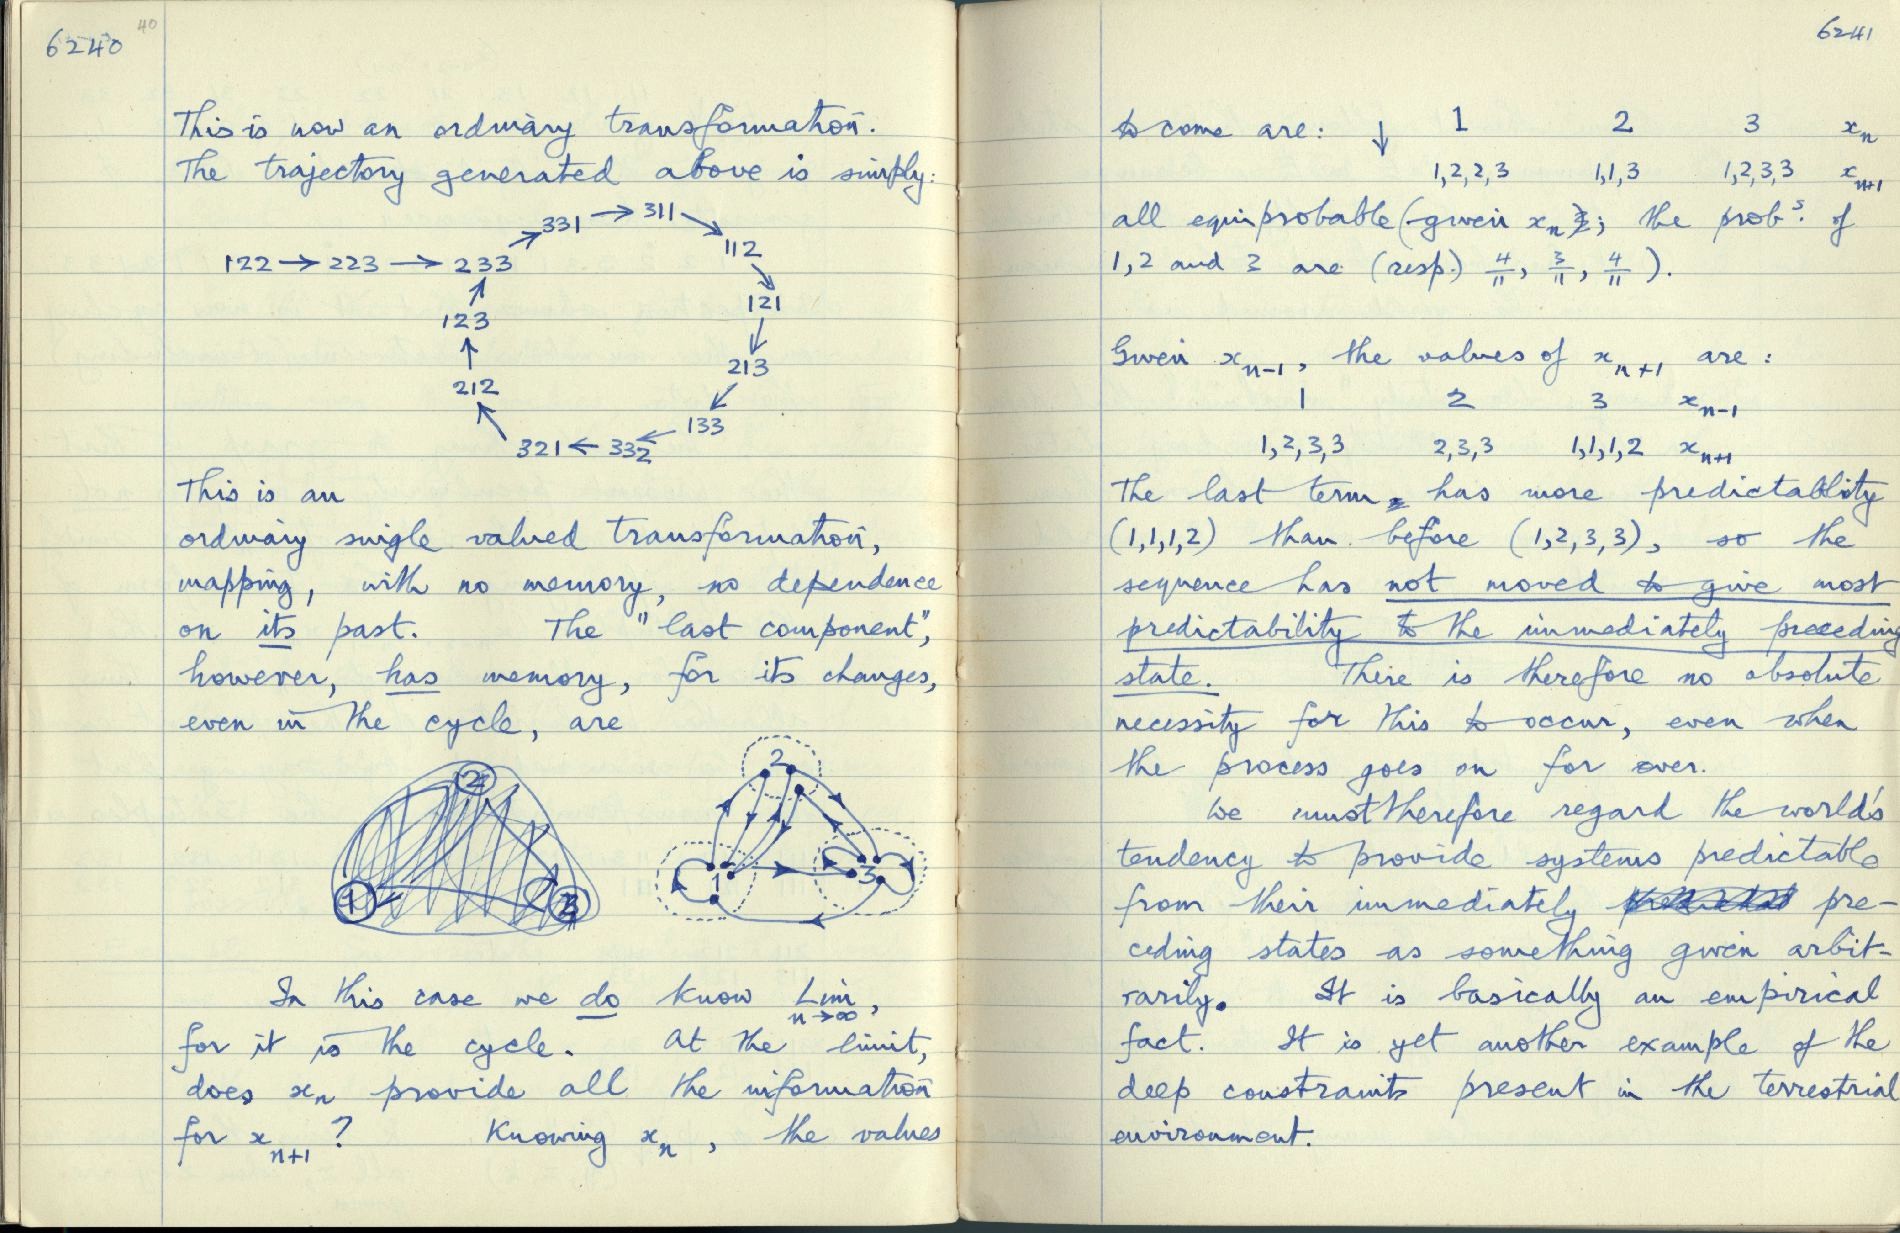 6240
40
This is now an ordinary transformation.
The trajectory generated above is simply:
331 → 311
112
122 → 223 → 233
121
123
213
212
133
321 ← 332
This is an
ordinary single valued transformation,
mapping, with no memory, no dependence
on its past. The "last component",
however, has memory, for its changes,
even in the cycle, are
2
1 3
2
1 3
In this case we do know Lim n→∞,
for it is the cycle. At the limit,
does xn provide all the information
for xn+1? Knowing xn, the values
6241
to come are: ↓ 1 2 3 xn
1,2,2,3 1,1,3 1,2,3,3 xn+1
all equiprobable (given xn); the probs. of
1,2 and 3 are (resp.) 4/11, 3/11, 4/11).
Given xn-1, the values of xn+1 are:
1 2 3 xn-1
1,2,3,3 2,3,3 1,1,1,2 xn+1
The last term, has more predictability
(1,1,1,2) than before (1,2,3,3), so the
sequence has not moved to give most
predictability to the immediately preceding
state. There is therefore no absolute
necessity for this to occur, even when
the process goes on for ever.
We must therefore regard the world's
tendency to provide systems predictable
from their immediately pre-
ceding states as something given arbit-
rarily. It is basically an empirical
fact. It is yet another example of the
deep constraints present in the terrestrial
environment.